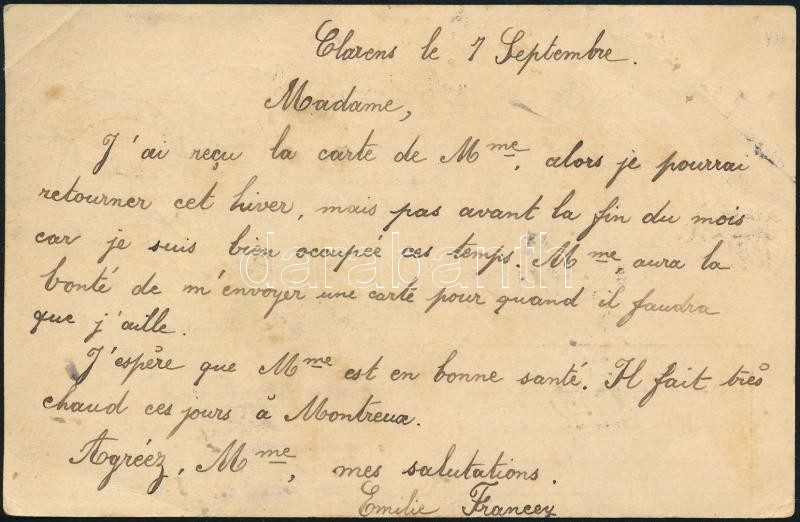 Clarens le 7 Septembre.
Madame,
J'ai reçu la carte de Mme, alors je pourrai
retourner cet hiver, mais pas avant la fin du mois
car je suis bien occupée ces temps. Mme aura la
bonté de m'envoyer une carte pour quand il faudra
que j'aille.
J'espère que Mme est en bonne santé. Il fait très
chaud ces jours à Montreux.
Agréez, Mme, mes salutations.
Emilie Francey
darabanth